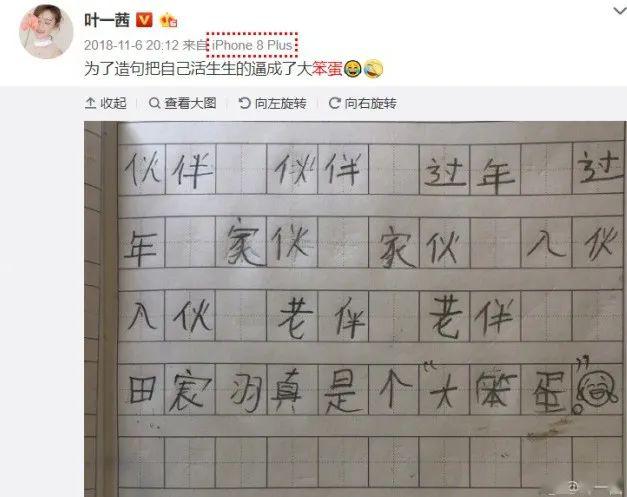 叶一茜
2018-11-6 20:12 来自 iPhone 8 Plus
为了造句把自己活生生的逼成了大笨蛋😂
收起 查看大图 向左旋转 向右旋转
伙伴 伙伴 过年 过
年 家伙 家伙 入伙
入伙 老伴 老伴
田宸羽真是个“大笨蛋”